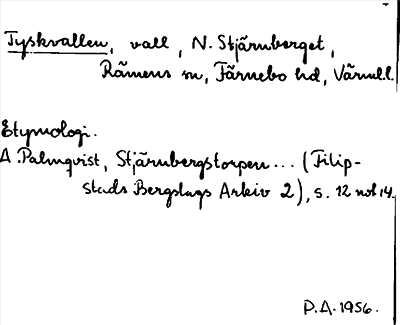 Tyskvallen, vall, N. Stjärnberget,
Rämens sn, Färnebo hd, Värml.l.
Etymologi.
A. Palmqvist, Stjärnbergstorpen... (Filip-
stads Bergslags Arkiv 2), s. 12 not 14.
P.A. 1956.